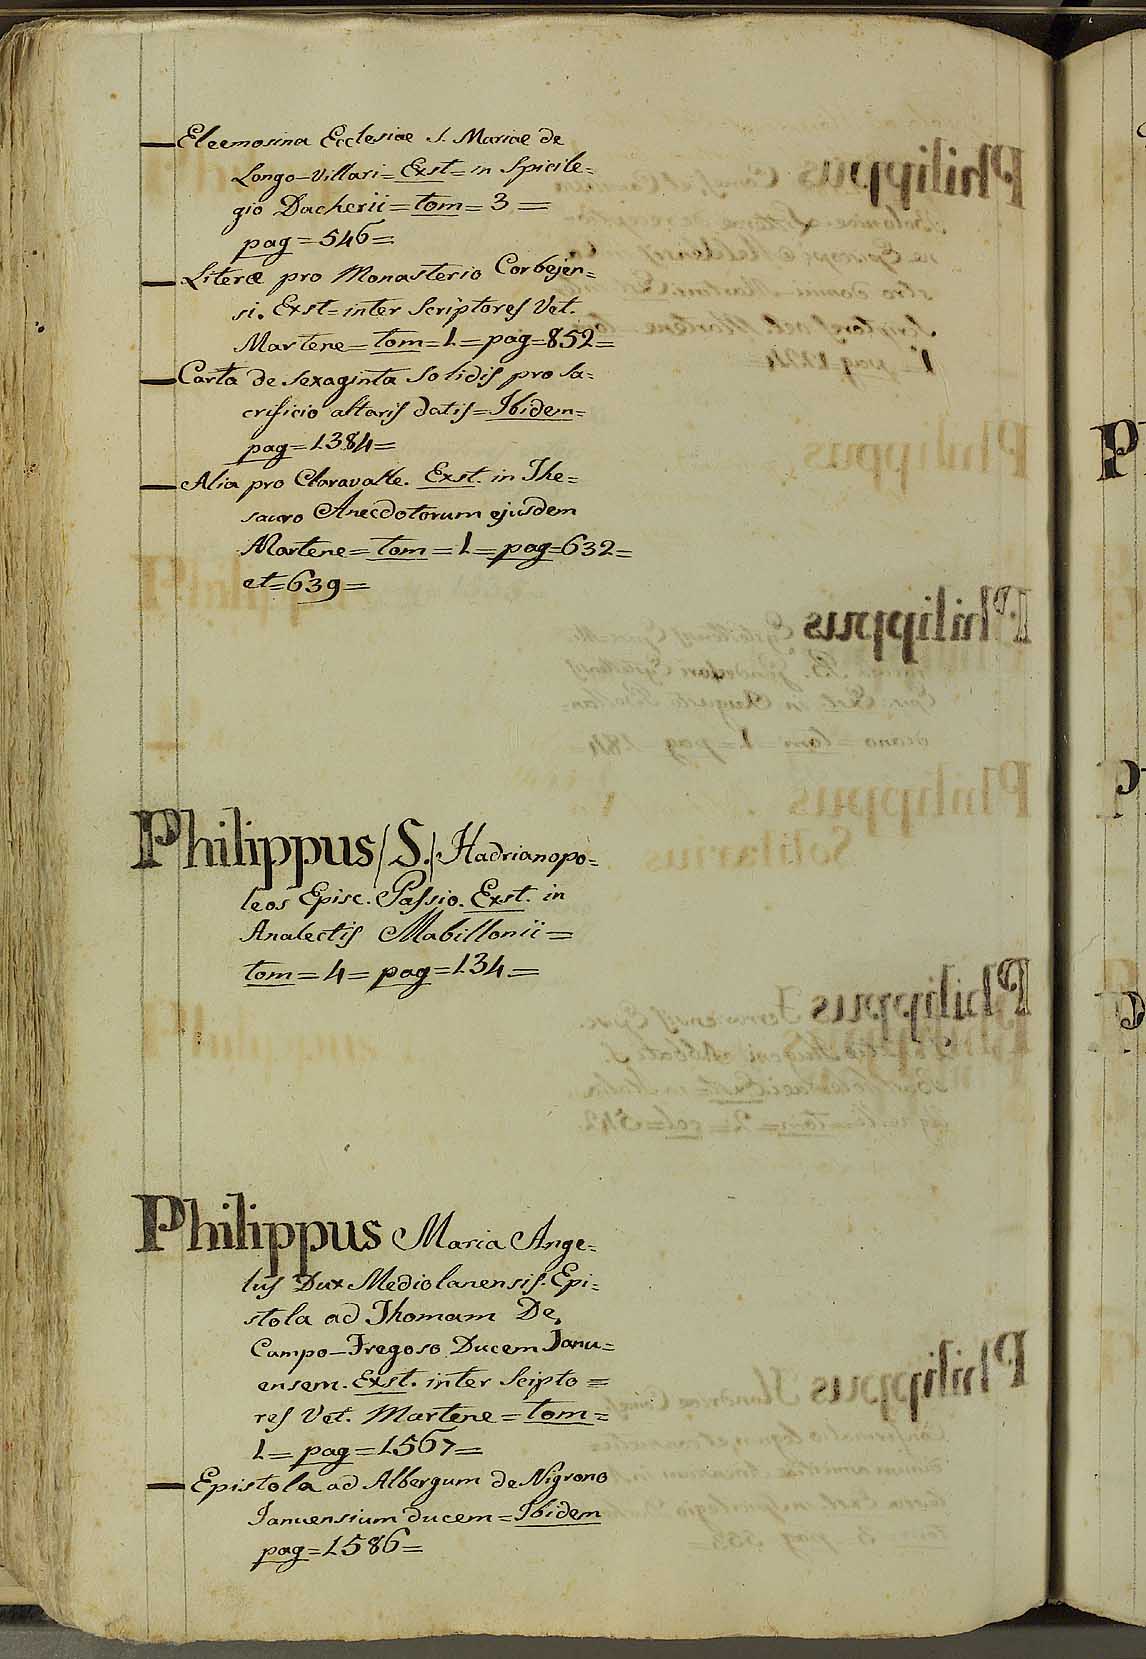 — Eleemosina Ecclesiae S. Mariae de
Longo-Villari = Exst = in Spicile=
gio Dacherii = tom = 3 =
pag = 546 =
— Literæ pro Monasterio Corbejen=
si. Exst = inter Scriptores Vet.
Martene = tom = 1 = pag = 852 =
— Carta de sexaginta Solidis pro Sa=
crificio altaris datis = Ibidem =
pag = 1384 =
— Alia pro Claravalle. Exst. in The=
sauro Anecdotorum ejusdem
Martene = tom = 1 = pag = 632 =
et = 639 =
Philippus /S./ Hadrianopo=
leos Episc. Passio. Exst. in
Analectis Mabillonii =
tom = 4 = pag = 134 =
Philippus Maria Ange=
lus Dux Mediolanensis. Epi=
stola ad Thomam De
Campo-Fregoso Ducem Janu=
ensem. Exst. inter Scipto =
res Vet. Martene = tom =
1 = pag = 1567 =
— Epistola ad Albergum de Nigrono
Januensium ducem = Ibidem
pag = 1586 =